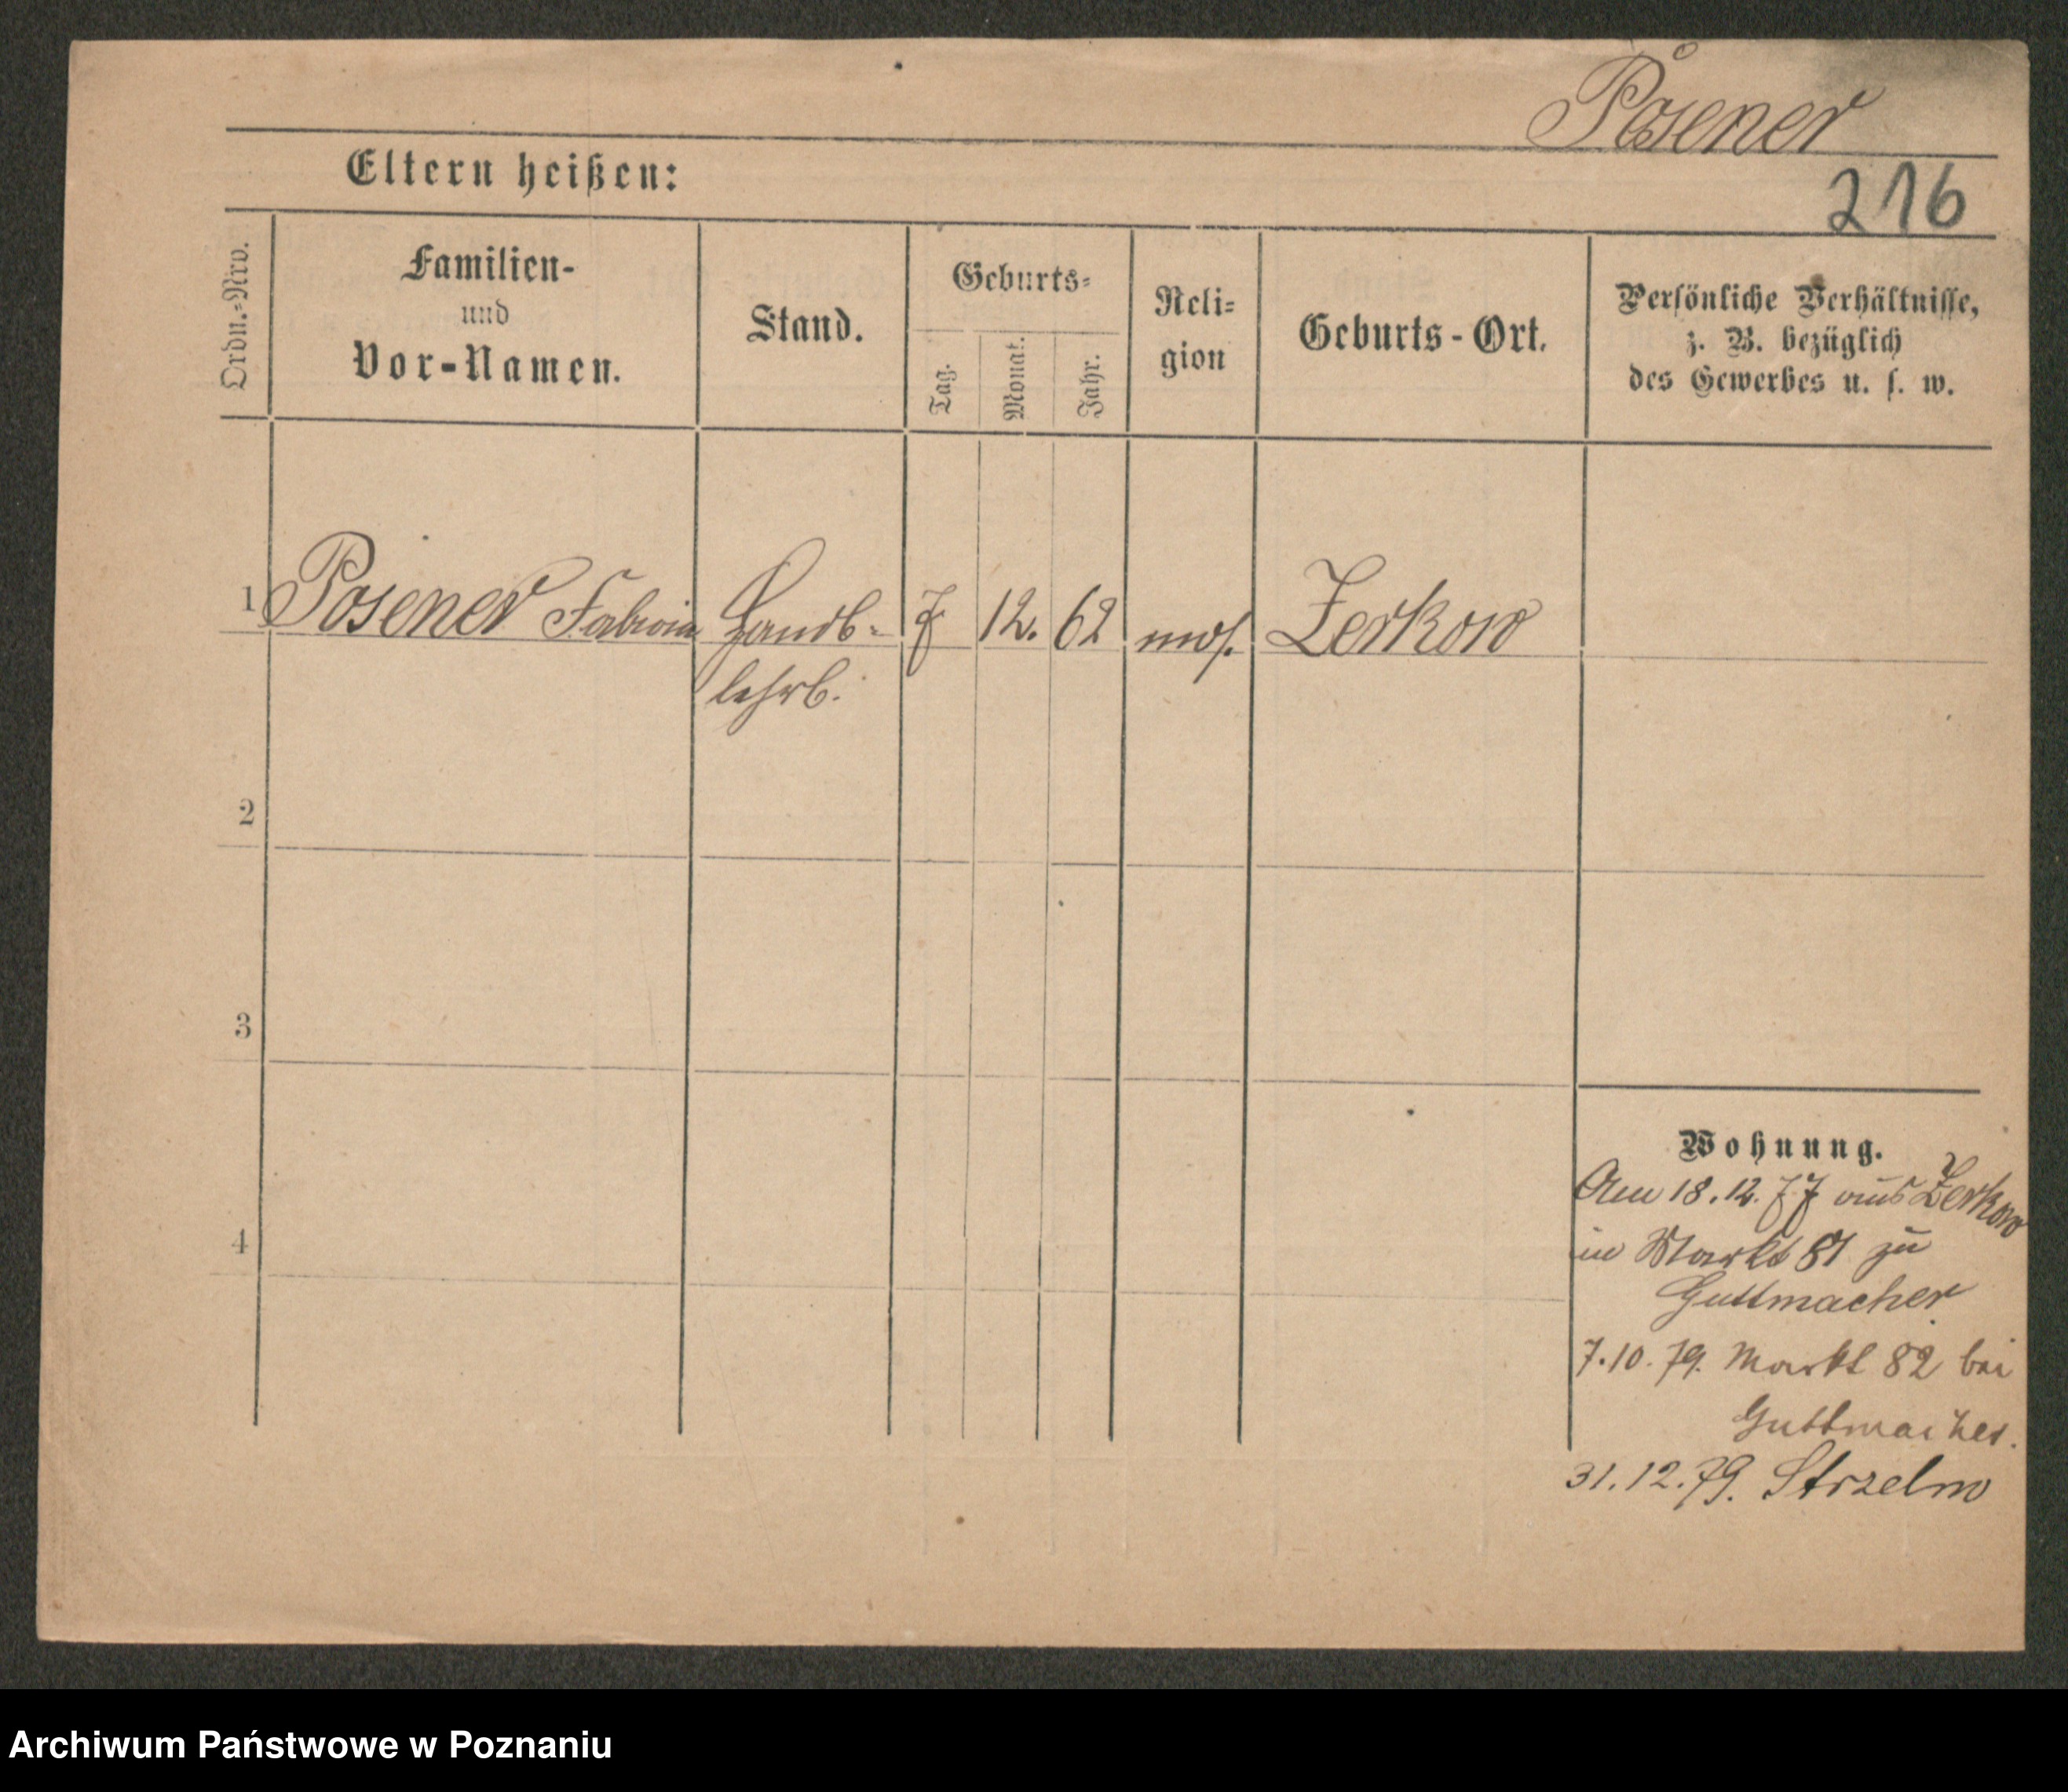 Posener
Eltern heißen:
216
Ordn.-Nro.
Familien-
und
Vor-Namen.
Stand.
Geburts-
Tag.
Monat.
Jahr.
Reli-
gion
Geburts-Ort.
Persönliche Verhältnisse,
z. B. bezüglich
des Gewerbes u. s. w.
1 Posener Fabian Handl- 7 12. 62 mos. Zerkow
lehrl.
2
3
4
Wohnung.
Am 18.12.77 aus Zerkow
in Markt 81 zu
Guttmacher
7.10.79. Markt 82 bei
Guttmacher.
31.12.79. Strzelno
Archiwum Państwowe w Poznaniu